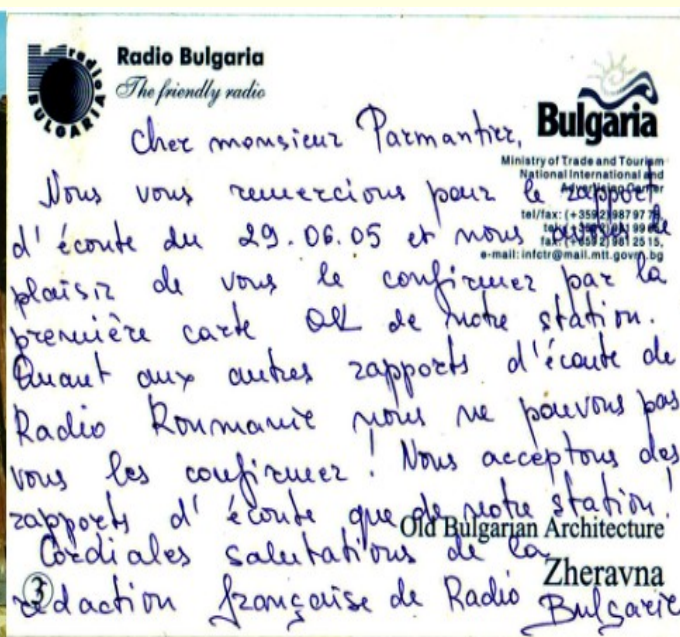 Radio Bulgaria
The friendly radio
radio
BULGARIA
Bulgaria
Ministry of Trade and Tourism
National International and
Advertising Center
tel/fax: (+3592)98797
fax: (+3592)9812515,
e-mail: infctr@mail.mtt.govrn.bg
Cher monsieur Parmantier,
Nous vous remercions pour le rapport
d'écoute du 29.06.05 et nous avons le
plaisir de vous le confirmer par la
première carte QSL de notre station.
Quant aux autres rapports d'écoute de
Radio Roumanie nous ne pouvons pas
vous les confirmer! Nous acceptons des
rapports d'écoute que de notre station!
Cordiales salutations de la
rédaction française de Radio Bulgarie
3
Old Bulgarian Architecture
Zheravna